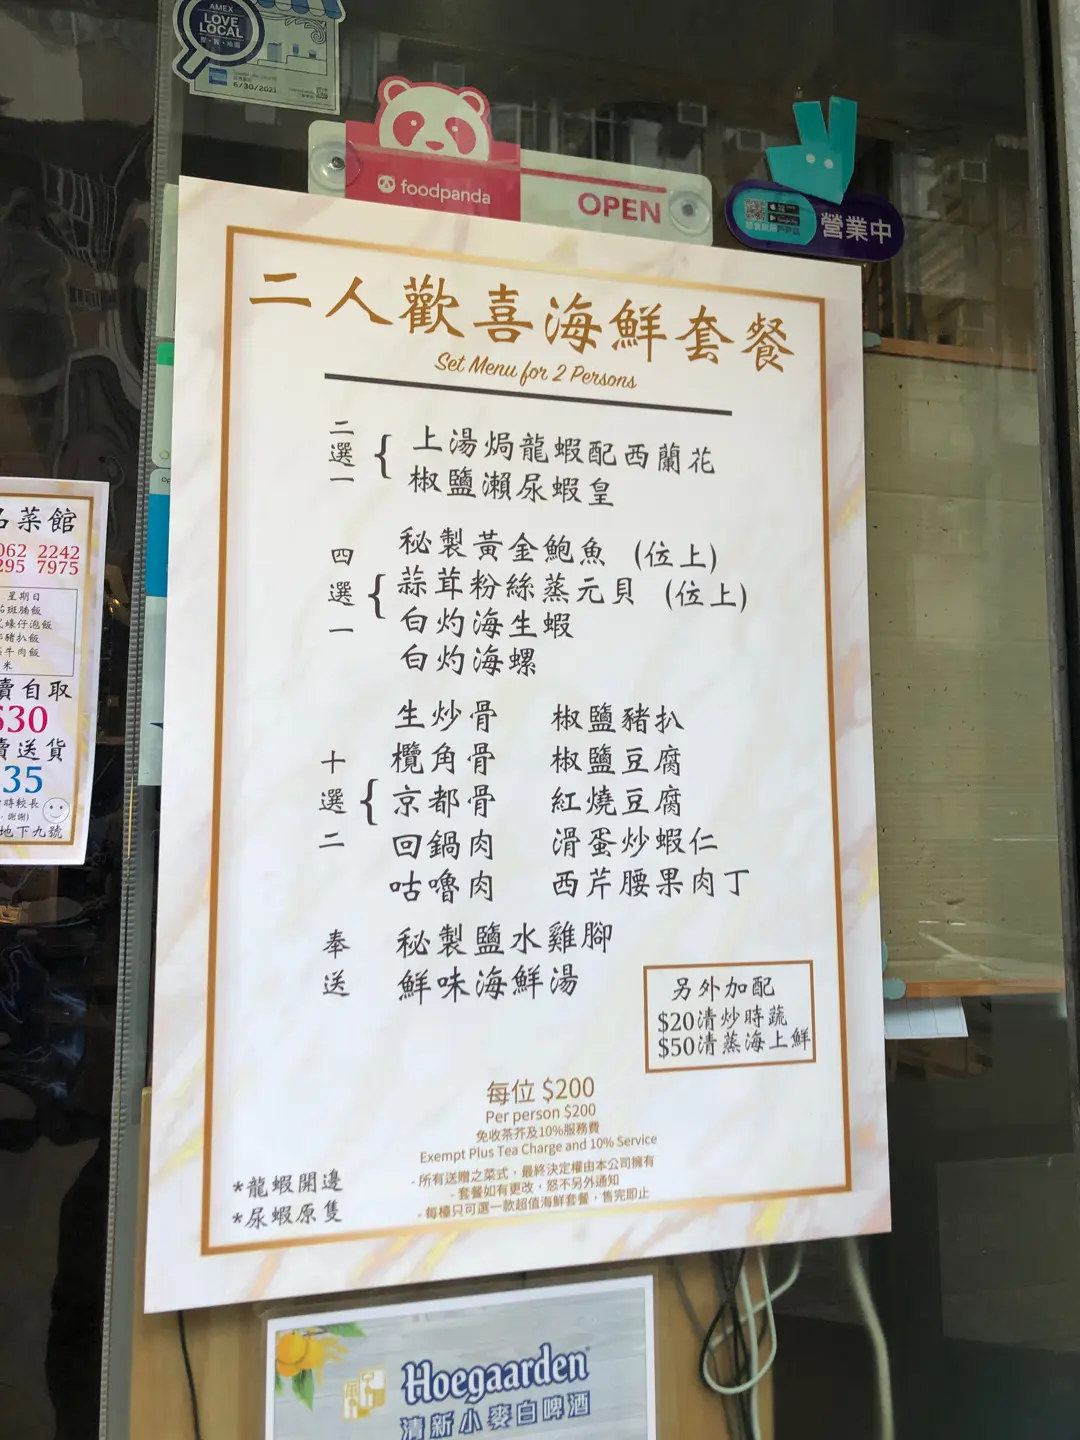 AMEX
LOVE
LOCAL
6/30/2021
foodpanda
OPEN
營業中
二人歡喜海鮮套餐
Set Menu for 2 Persons
二選一
上湯焗龍蝦配西蘭花
椒鹽瀨尿蝦皇
四選一
秘製黃金鮑魚 (位上)
蒜茸粉絲蒸元貝 (位上)
白灼海生蝦
白灼海螺
十選二
生炒骨 椒鹽豬扒
欖角骨 椒鹽豆腐
京都骨 紅燒豆腐
回鍋肉 滑蛋炒蝦仁
咕嚕肉 西芹腰果肉丁
奉送
秘製鹽水雞腳
鮮味海鮮湯
另外加配
$20清炒時蔬
$50清蒸海上鮮
每位 $200
Per person $200
免收茶芥及10%服務費
Exempt Plus Tea Charge and 10% Service
- 所有送贈之菜式，最終決定權由本公司擁有
- 套餐如有更改，恕不另外通知
- 每檯只可選一款超值海鮮套餐，售完即止
*龍蝦開邊
*尿蝦原隻
菜館
062 2242
295 7975
星期日
斑腩飯
蠔仔泡飯
豬扒飯
牛肉飯
米
賣自取
$30
賣送貨
35
時較長
，謝謝)
地下九號
Hoegaarden
清新小麥白啤酒